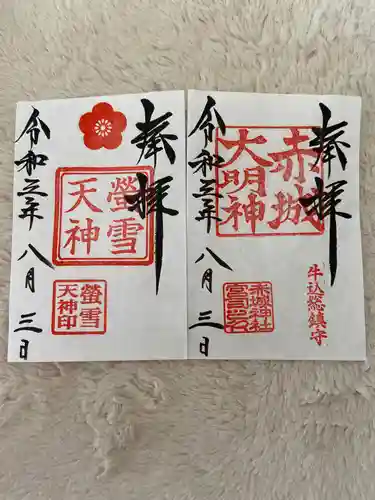 奉拝
赤城
大明神
牛込総鎮守
赤城神社
令和三年 八月 三日
奉拝
螢雪
天神
螢雪
天神印
令和三年 八月 三日